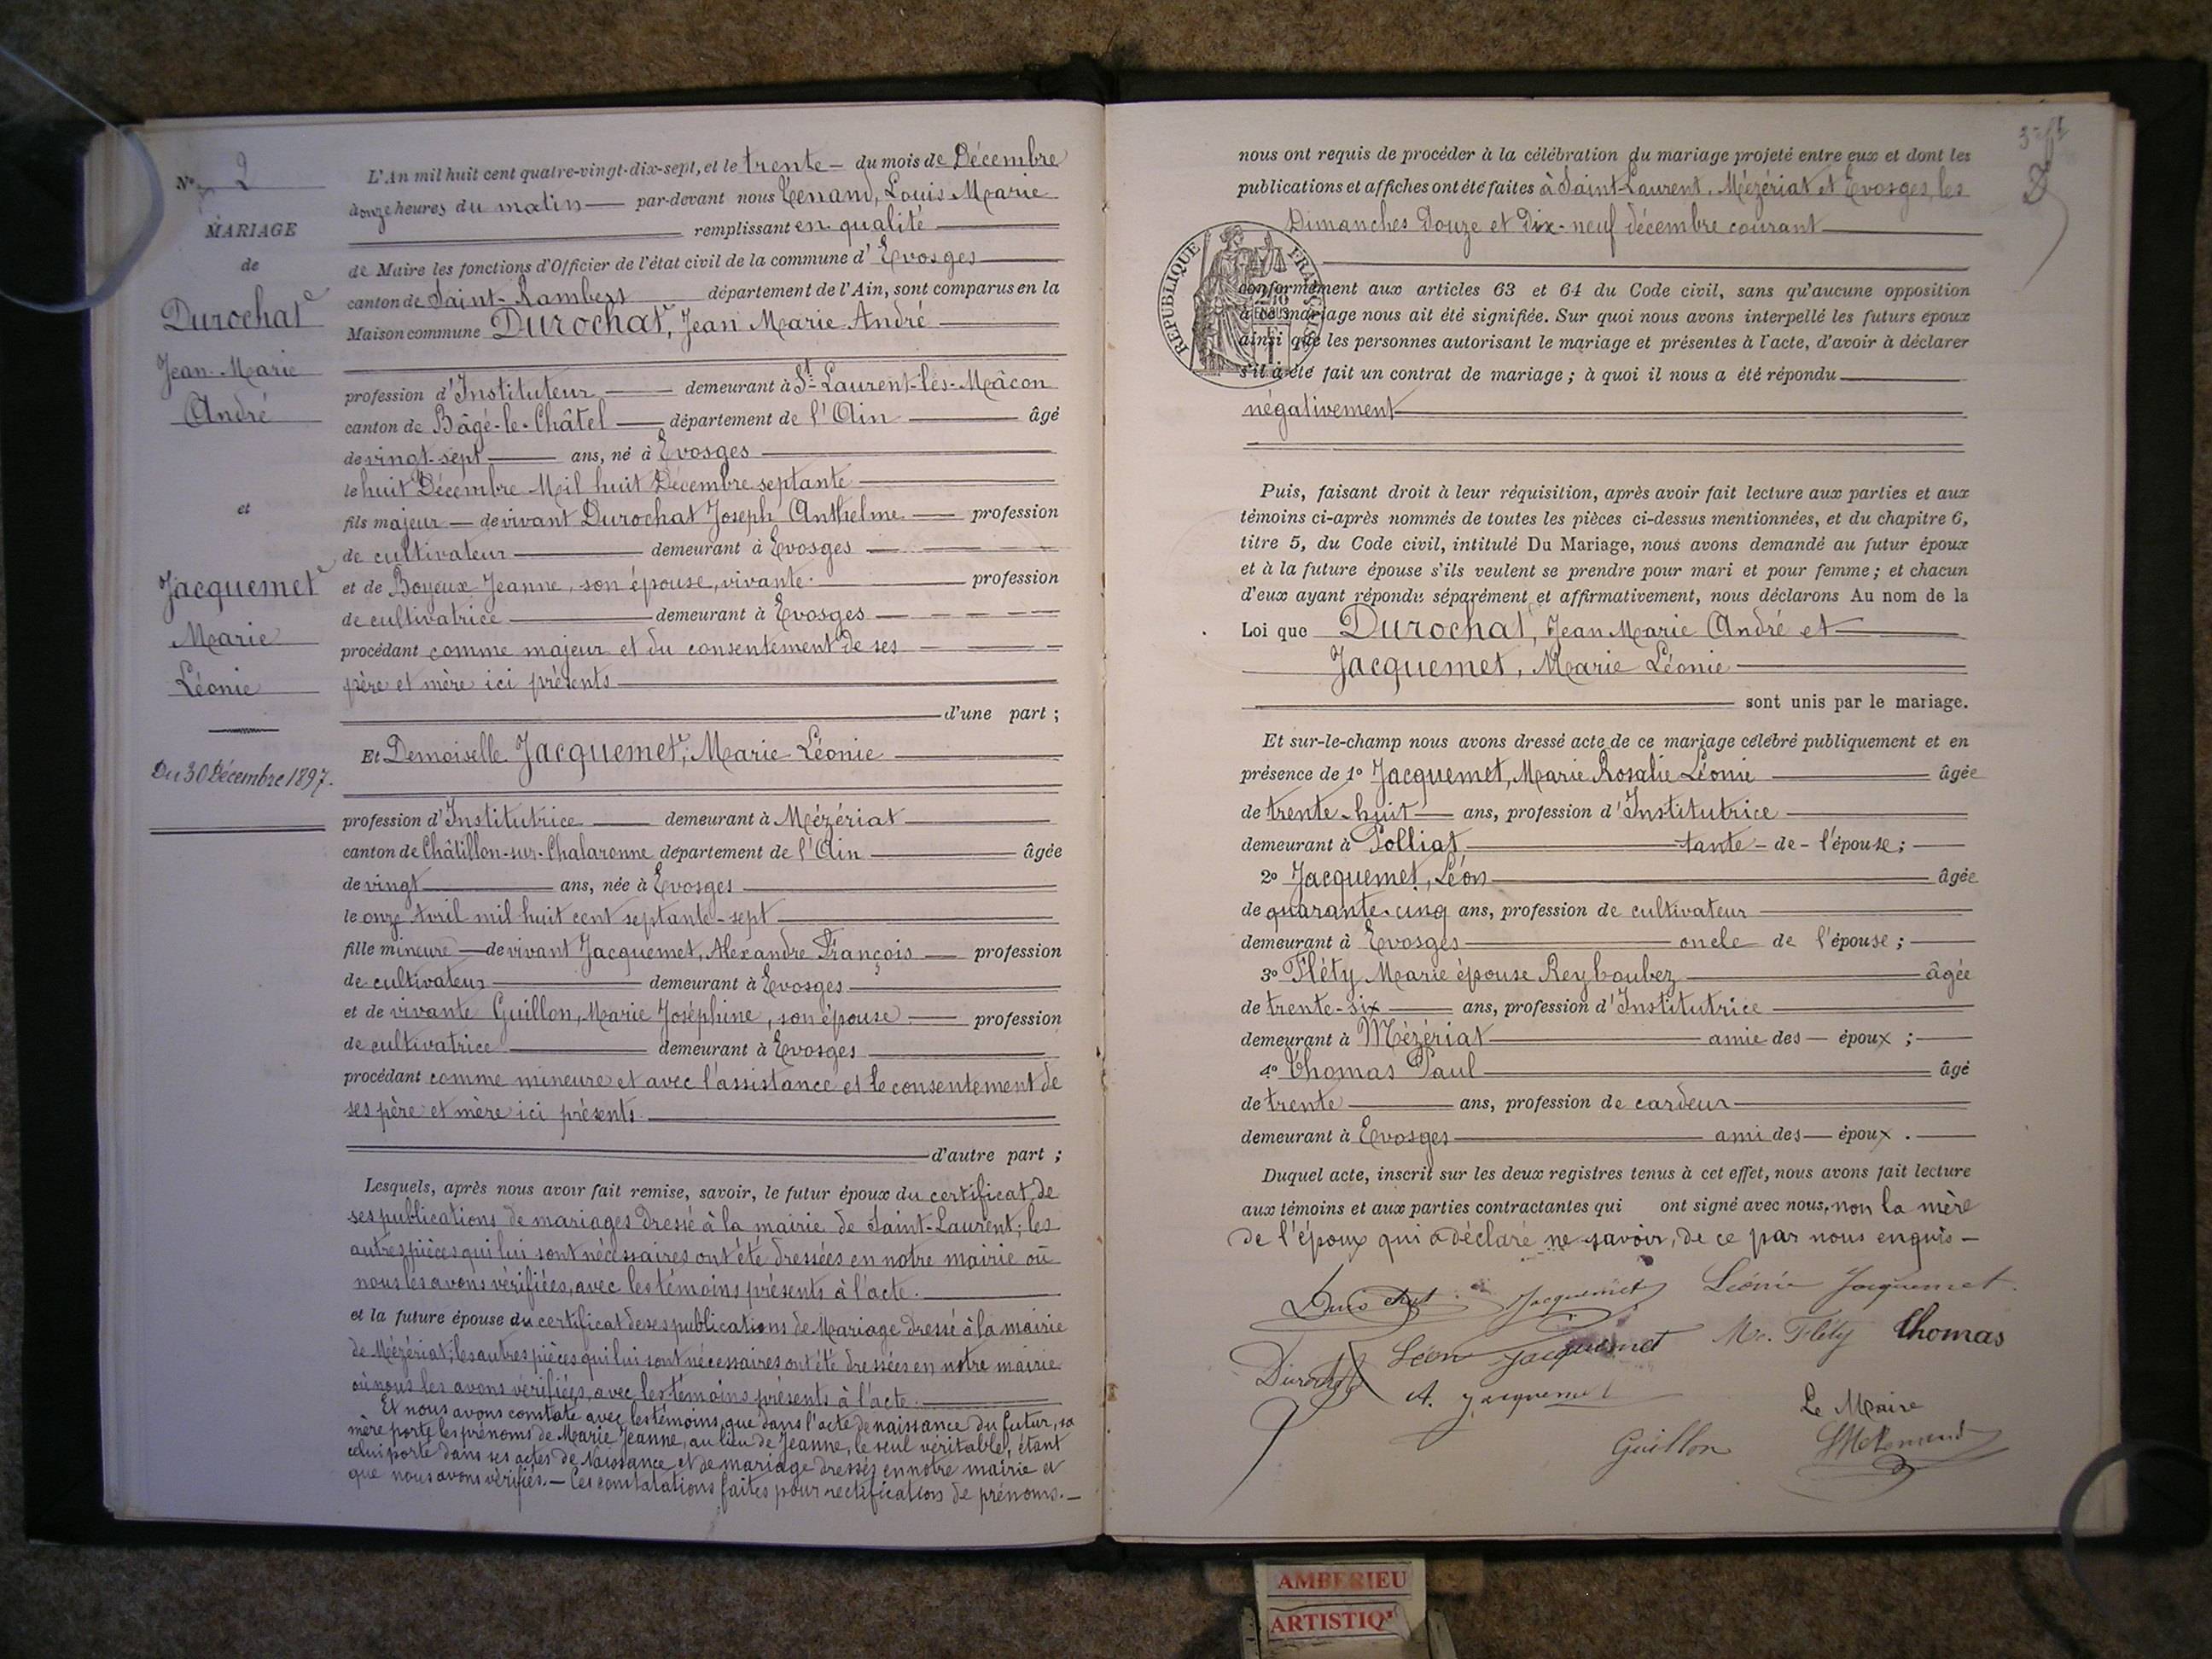 N° 2
MARIAGE
de
Durochat
Jean-Marie
André
et
Jacquemet
Marie
Léonie
Du 30 Décembre 1897.
L'An mil huit cent quatre-vingt-dix-sept, et le trente du mois de Décembre
à onze heures du matin par-devant nous Tenand, Louis Marie
remplissant en qualité
de Maire les fonctions d'Officier de l'état civil de la commune d'Evosges
canton de Saint-Rambert département de l'Ain, sont comparus en la
Maison commune Durochat, Jean Marie André
profession d'Instituteur demeurant à St-Laurent-lès-Mâcon
canton de Bâgé-le-Châtel département de l'Ain âgé
de vingt-sept ans, né à Evosges
le huit Décembre Mil huit Décembre septante
fils majeur de vivant Durochat Joseph Anthelme profession
de cultivateur demeurant à Evosges
et de Boyeux Jeanne, son épouse, vivante. profession
de cultivatrice demeurant à Evosges
procédant comme majeur et du consentement de ses
père et mère ici présents
d'une part ;
Et Demoiselle Jacquemet, Marie Léonie
profession d'Institutrice demeurant à Mézériat
canton de Châtillon-sur-Chalaronne département de l'Ain âgée
de vingt ans, née à Evosges
le onze Avril mil huit cent septante-sept
fille mineure de vivant Jacquemet, Alexandre François profession
de cultivateur demeurant à Evosges
et de vivante Guillon, Marie Joséphine, son épouse profession
de cultivatrice demeurant à Evosges
procédant comme mineure et avec l'assistance et le consentement de
ses père et mère ici présents
d'autre part ;
Lesquels, après nous avoir fait remise, savoir, le futur époux du certificat de
ses publications de mariages dressé à la mairie de Saint-Laurent; les
autres pièces qui lui sont nécessaires ont été dressées en notre mairie où
nous les avons vérifiées, avec les témoins présents à l'acte.
et la future épouse du certificat de ses publications de Mariage dressé à la mairie
de Mézériat; les autres pièces qui lui sont nécessaires ont été dressées en notre mairie
où nous les avons vérifiées, avec les témoins présents à l'acte.
Et nous avons constaté avec les témoins, que dans l'acte de naissance du futur, sa
mère porte les prénoms de Marie Jeanne, au lieu de Jeanne, le seul véritable, étant
celui porté dans ses actes de Naissance et de mariage dressés en notre mairie et
que nous avons vérifiés. — Ces constatations faites pour rectification de prénoms. —
nous ont requis de procéder à la célébration du mariage projeté entre eux et dont les
publications et affiches ont été faites à Saint-Laurent, Mézériat et Evosges, les
Dimanches Douze et Dix-neuf décembre courant
REPUBLIQUE FRANÇAISE
conformément aux articles 63 et 64 du Code civil, sans qu'aucune opposition
à ce mariage nous ait été signifiée. Sur quoi nous avons interpellé les futurs époux
ainsi que les personnes autorisant le mariage et présentes à l'acte, d'avoir à déclarer
s'il a été fait un contrat de mariage ; à quoi il nous a été répondu
négativement
Puis, faisant droit à leur réquisition, après avoir fait lecture aux parties et aux
témoins ci-après nommés de toutes les pièces ci-dessus mentionnées, et du chapitre 6,
titre 5, du Code civil, intitulé Du Mariage, nous avons demandé au futur époux
et à la future épouse s'ils veulent se prendre pour mari et pour femme ; et chacun
d'eux ayant répondu séparément et affirmativement, nous déclarons Au nom de la
Loi que Durochat, Jean Marie André et
Jacquemet, Marie Léonie
sont unis par le mariage.
Et sur-le-champ nous avons dressé acte de ce mariage célébré publiquement et en
présence de 1° Jacquemet, Marie Rosalie Léonie âgée
de trente-huit ans, profession d'Institutrice
demeurant à Polliat tante de l'épouse ;
2° Jacquemet, Léon âgée
de quarante-cinq ans, profession de cultivateur
demeurant à Evosges oncle de l'épouse ;
3° Fléty Marie épouse Reyboubez âgée
de trente-six ans, profession d'Institutrice
demeurant à Mézériat amie des époux ;
4° Thomas Paul âgé
de trente ans, profession de cardeur
demeurant à Evosges ami des époux.
Duquel acte, inscrit sur les deux registres tenus à cet effet, nous avons fait lecture
aux témoins et aux parties contractantes qui ont signé avec nous, non la mère
de l'époux qui a déclaré ne savoir, de ce par nous enquis —
Durochat Jacquemet Léonie Jacquemet
Léon Jacquemet M. Fléty Thomas
Durochat A. Jacquemet
Le Maire
Guillon
AMBERIEU
ARTISTIQ